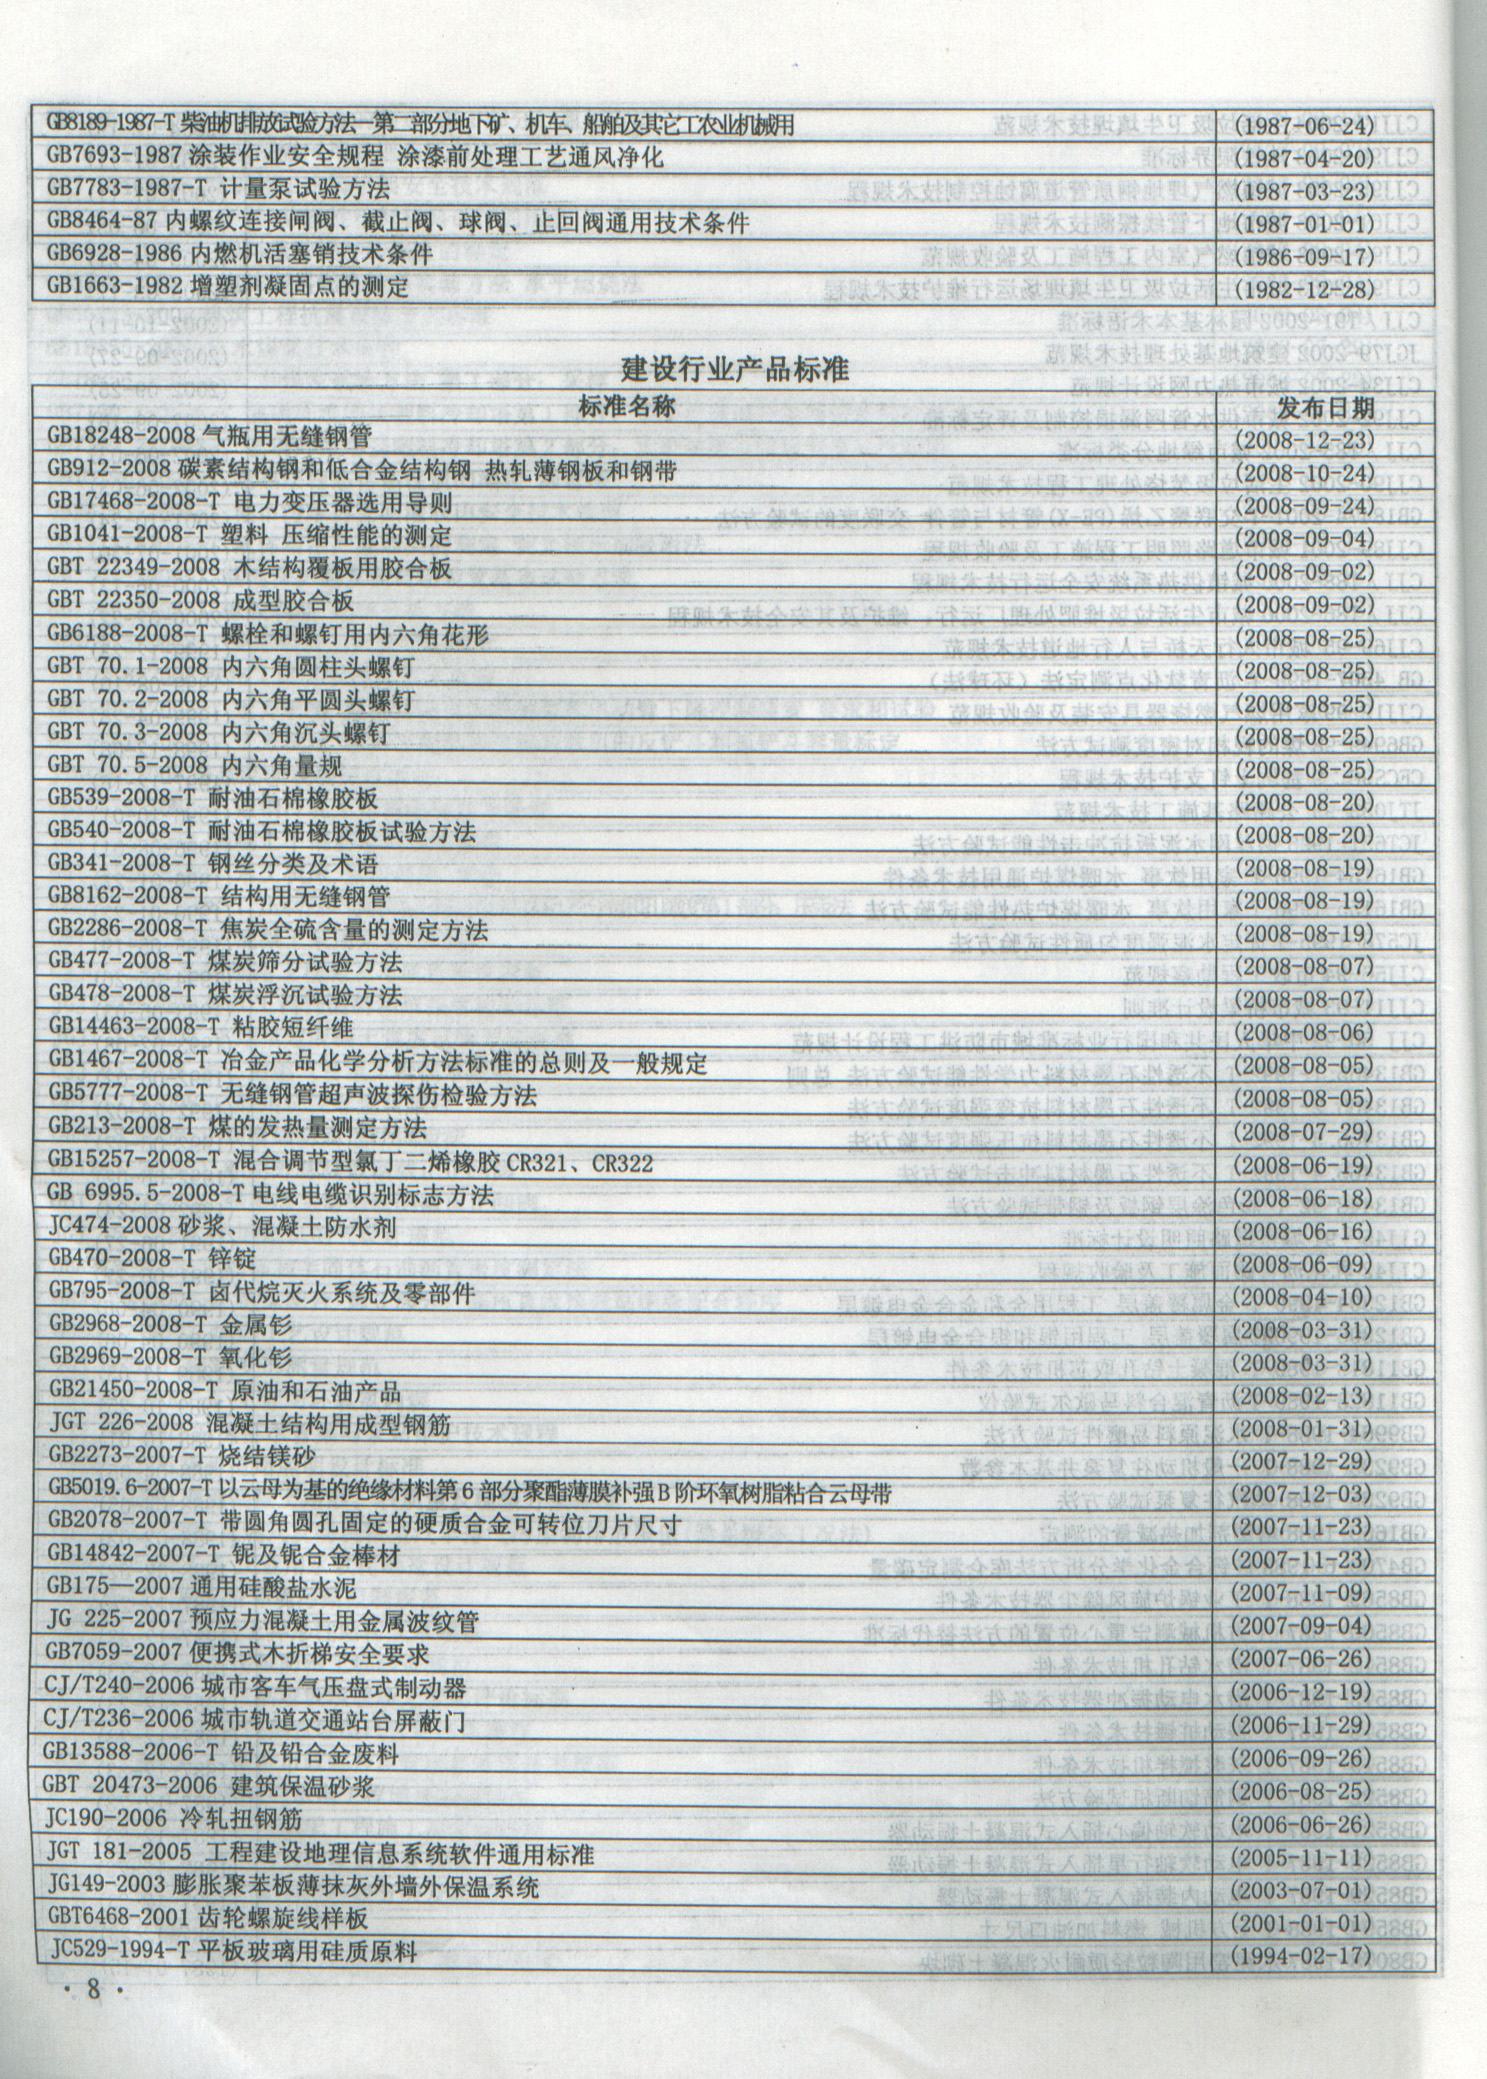 GB8189-1987-T 柴油机排放试验方法—第二部分地下矿、机车、船舶及其它工农业机械用 (1987-06-24)
GB7693-1987 涂装作业安全规程 涂漆前处理工艺通风净化 (1987-04-20)
GB7783-1987-T 计量泵试验方法 (1987-03-23)
GB8464-87 内螺纹连接闸阀、截止阀、球阀、止回阀通用技术条件 (1987-01-01)
GB6928-1986 内燃机活塞销技术条件 (1986-09-17)
GB1663-1982 增塑剂凝固点的测定 (1982-12-28)
建设行业产品标准
标准名称 发布日期
GB18248-2008 气瓶用无缝钢管 (2008-12-23)
GB912-2008 碳素结构钢和低合金结构钢 热轧薄钢板和钢带 (2008-10-24)
GB17468-2008-T 电力变压器选用导则 (2008-09-24)
GB1041-2008-T 塑料 压缩性能的测定 (2008-09-04)
GBT 22349-2008 木结构覆板用胶合板 (2008-09-02)
GBT 22350-2008 成型胶合板 (2008-09-02)
GB6188-2008-T 螺栓和螺钉用内六角花形 (2008-08-25)
GBT 70.1-2008 内六角圆柱头螺钉 (2008-08-25)
GBT 70.2-2008 内六角平圆头螺钉 (2008-08-25)
GBT 70.3-2008 内六角沉头螺钉 (2008-08-25)
GBT 70.5-2008 内六角量规 (2008-08-25)
GB539-2008-T 耐油石棉橡胶板 (2008-08-20)
GB540-2008-T 耐油石棉橡胶板试验方法 (2008-08-20)
GB341-2008-T 钢丝分类及术语 (2008-08-19)
GB8162-2008-T 结构用无缝钢管 (2008-08-19)
GB2286-2008-T 焦炭全硫含量的测定方法 (2008-08-19)
GB477-2008-T 煤炭筛分试验方法 (2008-08-07)
GB478-2008-T 煤炭浮沉试验方法 (2008-08-07)
GB14463-2008-T 粘胶短纤维 (2008-08-06)
GB1467-2008-T 冶金产品化学分析方法标准的总则及一般规定 (2008-08-05)
GB5777-2008-T 无缝钢管超声波探伤检验方法 (2008-08-05)
GB213-2008-T 煤的发热量测定方法 (2008-07-29)
GB15257-2008-T 混合调节型氯丁二烯橡胶 CR321、CR322 (2008-06-19)
GB 6995.5-2008-T 电线电缆识别标志方法 (2008-06-18)
JC474-2008 砂浆、混凝土防水剂 (2008-06-16)
GB470-2008-T 锌锭 (2008-06-09)
GB795-2008-T 卤代烷灭火系统及零部件 (2008-04-10)
GB2968-2008-T 金属钐 (2008-03-31)
GB2969-2008-T 氧化钐 (2008-03-31)
GB21450-2008-T 原油和石油产品 (2008-02-13)
JGT 226-2008 混凝土结构用成型钢筋 (2008-01-31)
GB2273-2007-T 烧结镁砂 (2007-12-29)
GB5019.6-2007-T 以云母为基的绝缘材料第 6 部分聚酯薄膜补强 B 阶环氧树脂粘合云母带 (2007-12-03)
GB2078-2007-T 带圆角圆孔固定的硬质合金可转位刀片尺寸 (2007-11-23)
GB14842-2007-T 铌及铌合金棒材 (2007-11-23)
GB175—2007 通用硅酸盐水泥 (2007-11-09)
JG 225-2007 预应力混凝土用金属波纹管 (2007-09-04)
GB7059-2007 便携式木折梯安全要求 (2007-06-26)
CJ/T240-2006 城市客车气压盘式制动器 (2006-12-19)
CJ/T236-2006 城市轨道交通站台屏蔽门 (2006-11-29)
GB13588-2006-T 铅及铅合金废料 (2006-09-26)
GBT 20473-2006 建筑保温砂浆 (2006-08-25)
JC190-2006 冷轧扭钢筋 (2006-06-26)
JGT 181-2005 工程建设地理信息系统软件通用标准 (2005-11-11)
JG149-2003 膨胀聚苯板薄抹灰外墙外保温系统 (2003-07-01)
GBT6468-2001 齿轮螺旋线样板 (2001-01-01)
JC529-1994-T 平板玻璃用硅质原料 (1994-02-17)
· 8 ·